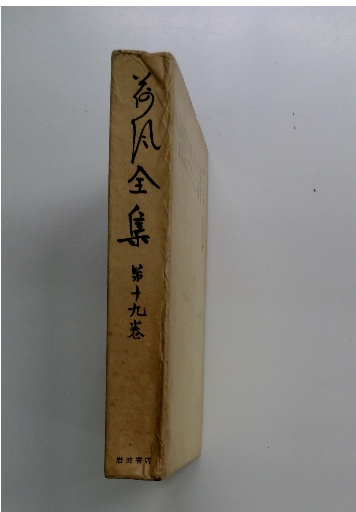 荷風全集
第十九巻
岩波書店